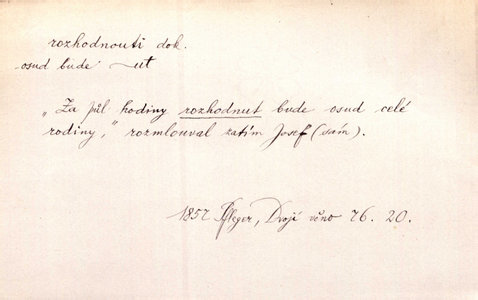 rozhodnouti dok.
osud bude -ut
„Za půl hodiny rozhodnut bude osud celé
rodiny,“ rozmlouval zatím Josef (sám).
1857 Pfleger, Dvojí věno 76. 20.